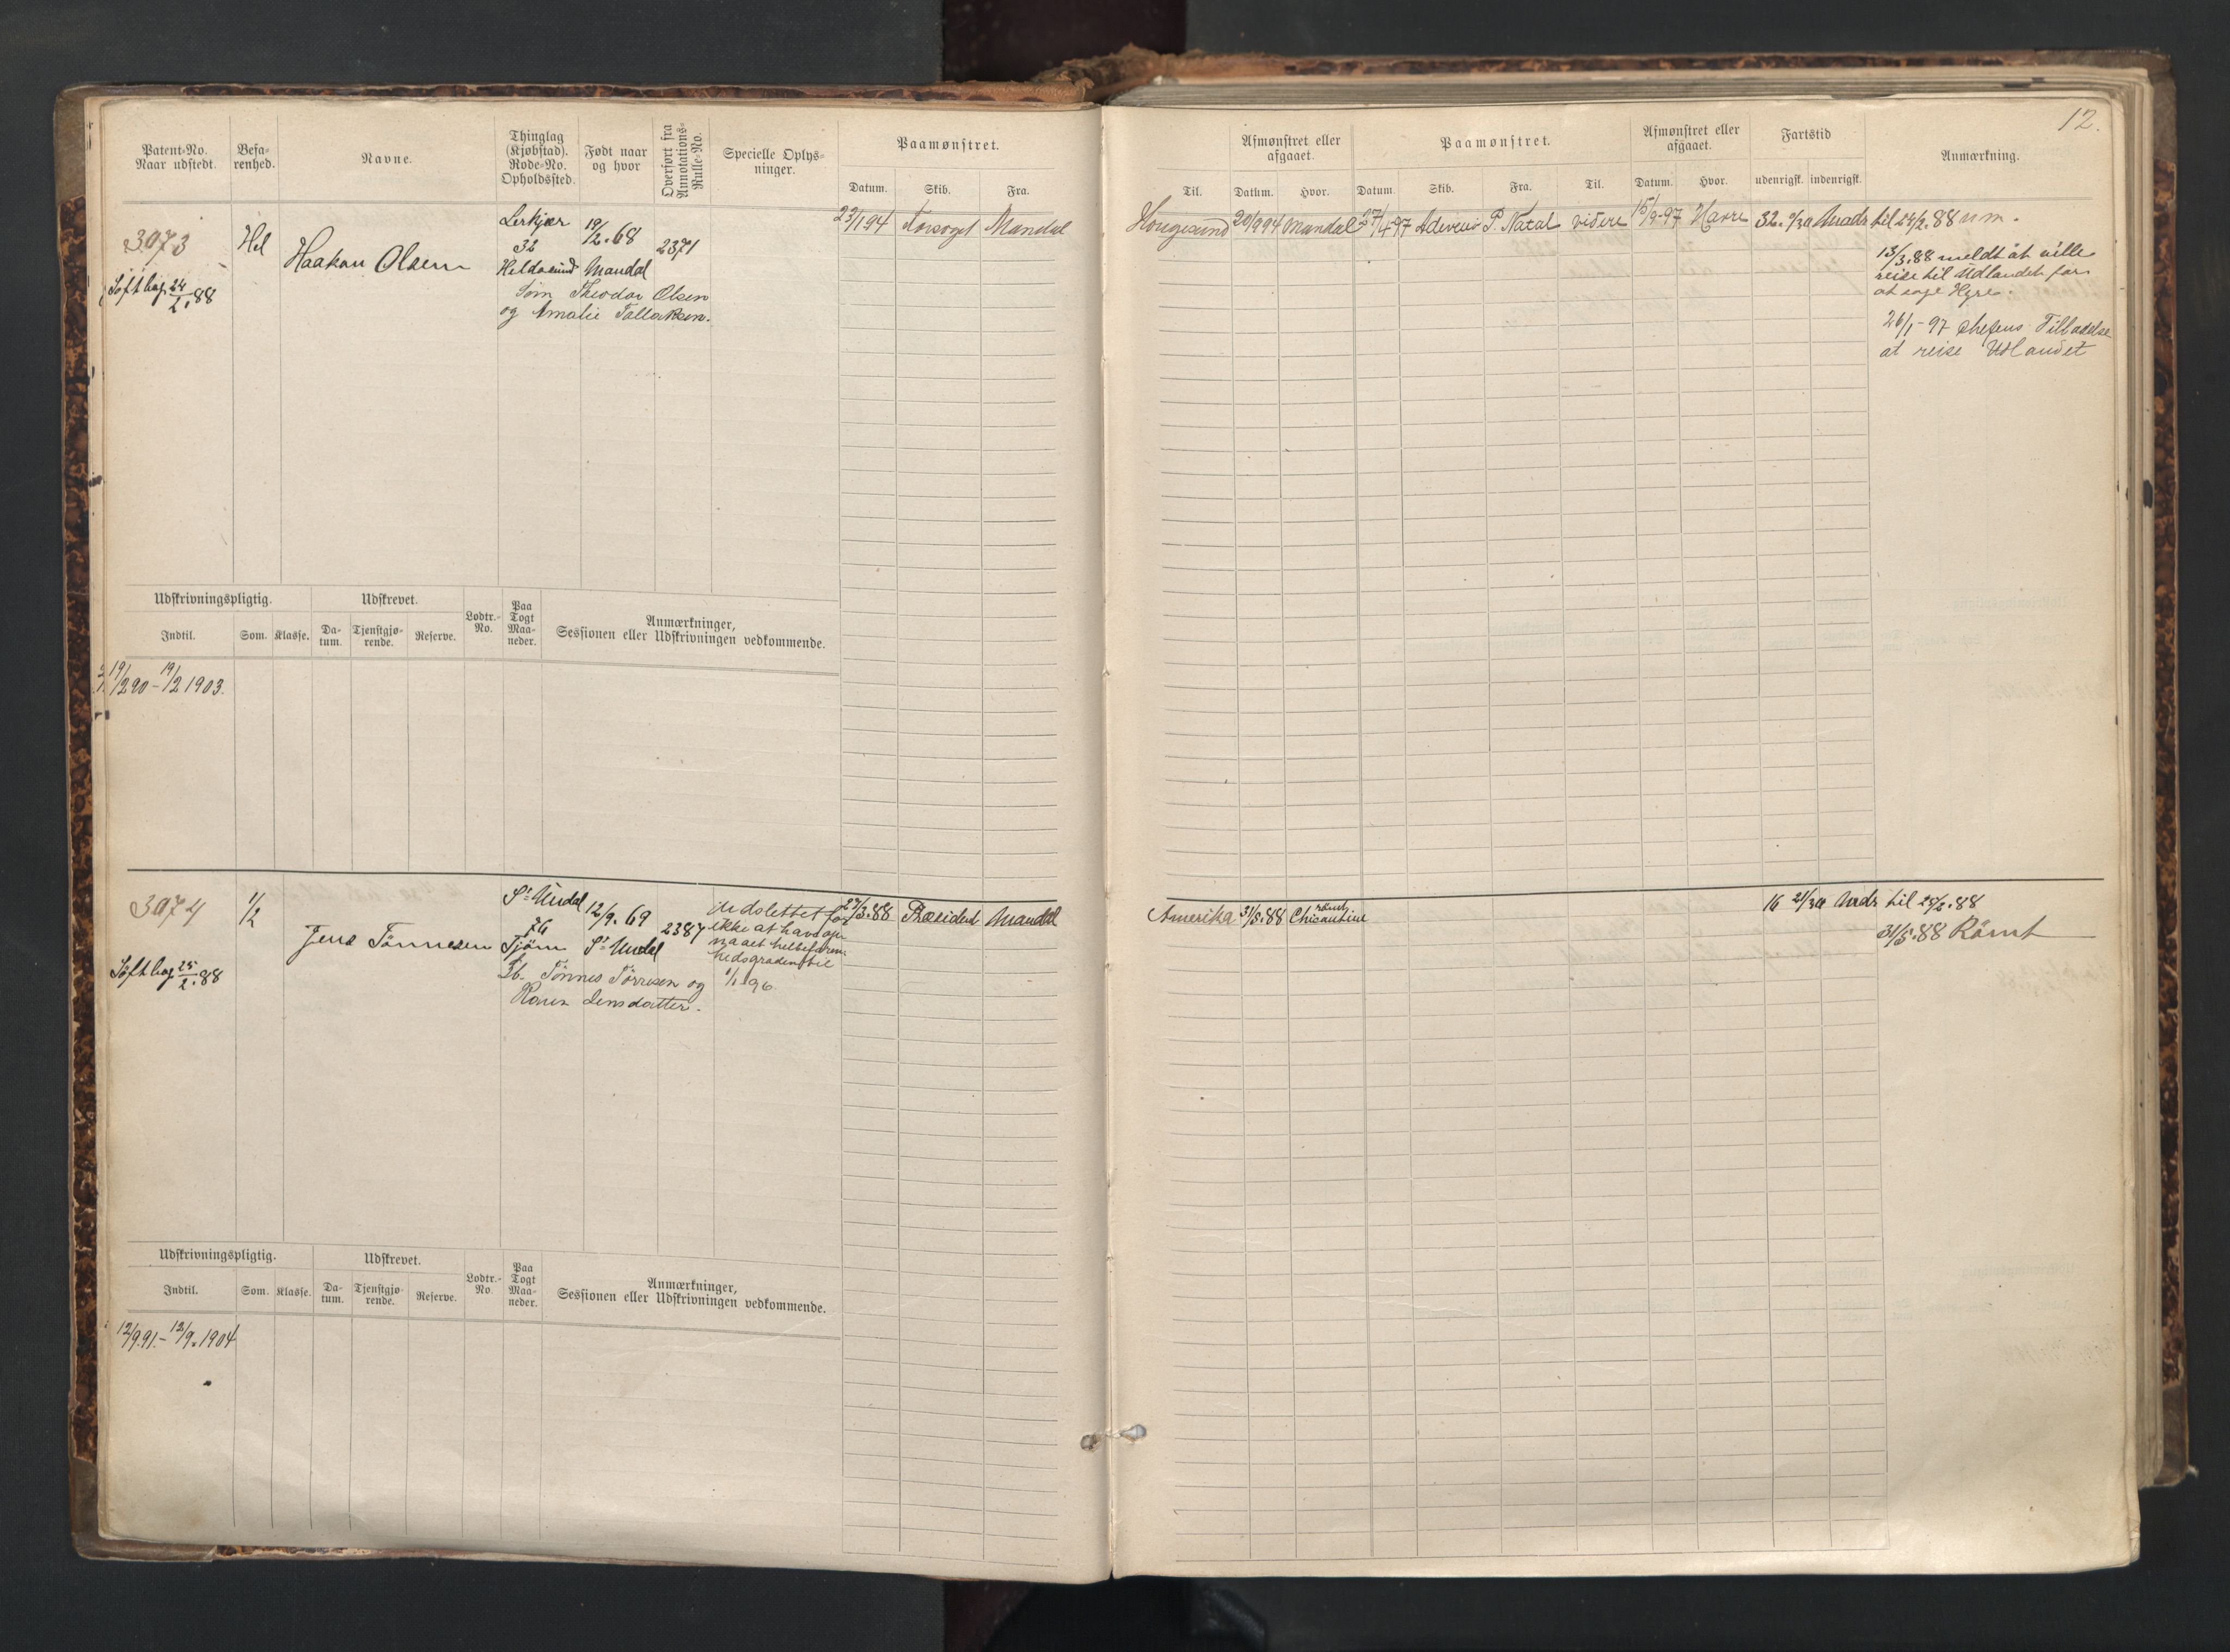 12.
Patent-No.
Naar udstedt.
Befa-
renhed.
Navne.
Thinglag
(Kjøbstad).
Rode-No.
Opholdssted.
Født naar
og hvor
Overført fra
Annotations-
Rulle-No.
Specielle Oplys-
ninger.
Paamønstret.
Datum.
Skib.
Fra.
Til.
Afmønstret eller
afgaaet.
Datum.
Hvor.
Paamønstret.
Datum.
Skib.
Fra.
Til.
Afmønstret eller
afgaaet.
Datum.
Hvor.
Fartstid
udenrigsk.
indenrigsk.
Anmærkning.
3073
Søftbog 24/2.88
Hel
Haakon Olsen
32
19/2.68
Mandal
2371
Søn Theodor Olsen
og Amalie Tallaksen.
Mandal
Mandal
P. Natal
videre
15/9-97
Havre
til 24/2.88
13/3.88 meldt at ville
reise til Udlandet for
at søge Hyre.
26/1-97 Chefens Tilladelse
at reise Udlandet
Udskrivningspligtig.
Udskrevet.
Indtil.
Som.
Klasse.
Da-
tum.
Tjenstgjø-
rende.
Reserve.
Lodtr.-
No.
Paa
Togt
Maa-
neder.
Anmærkninger,
Sessionen eller Udskrivningen vedkommende.
19/2 90 - 19/2 1903.
3074
Søftbog 25/2.88
1/2
Jens Tønnesen
St Undal
76
12/9.69
St Undal
2387
Tønnes Tørresen og
Karen Jensdatter.
udslettet for
ikke at have op-
naaet helbefaren-
hedsgraden til
1/1 96
27/3.88
Præsident
Mandal
Amerika
31/5.88
rømt
16 21/30
til 25/2.88
31/5.88 Rømt
Udskrivningspligtig.
Udskrevet.
Indtil.
Som.
Klasse.
Da-
tum.
Tjenstgjø-
rende.
Reserve.
Lodtr.-
No.
Paa
Togt
Maa-
neder.
Anmærkninger,
Sessionen eller Udskrivningen vedkommende.
12/9 91 - 12/9. 1904